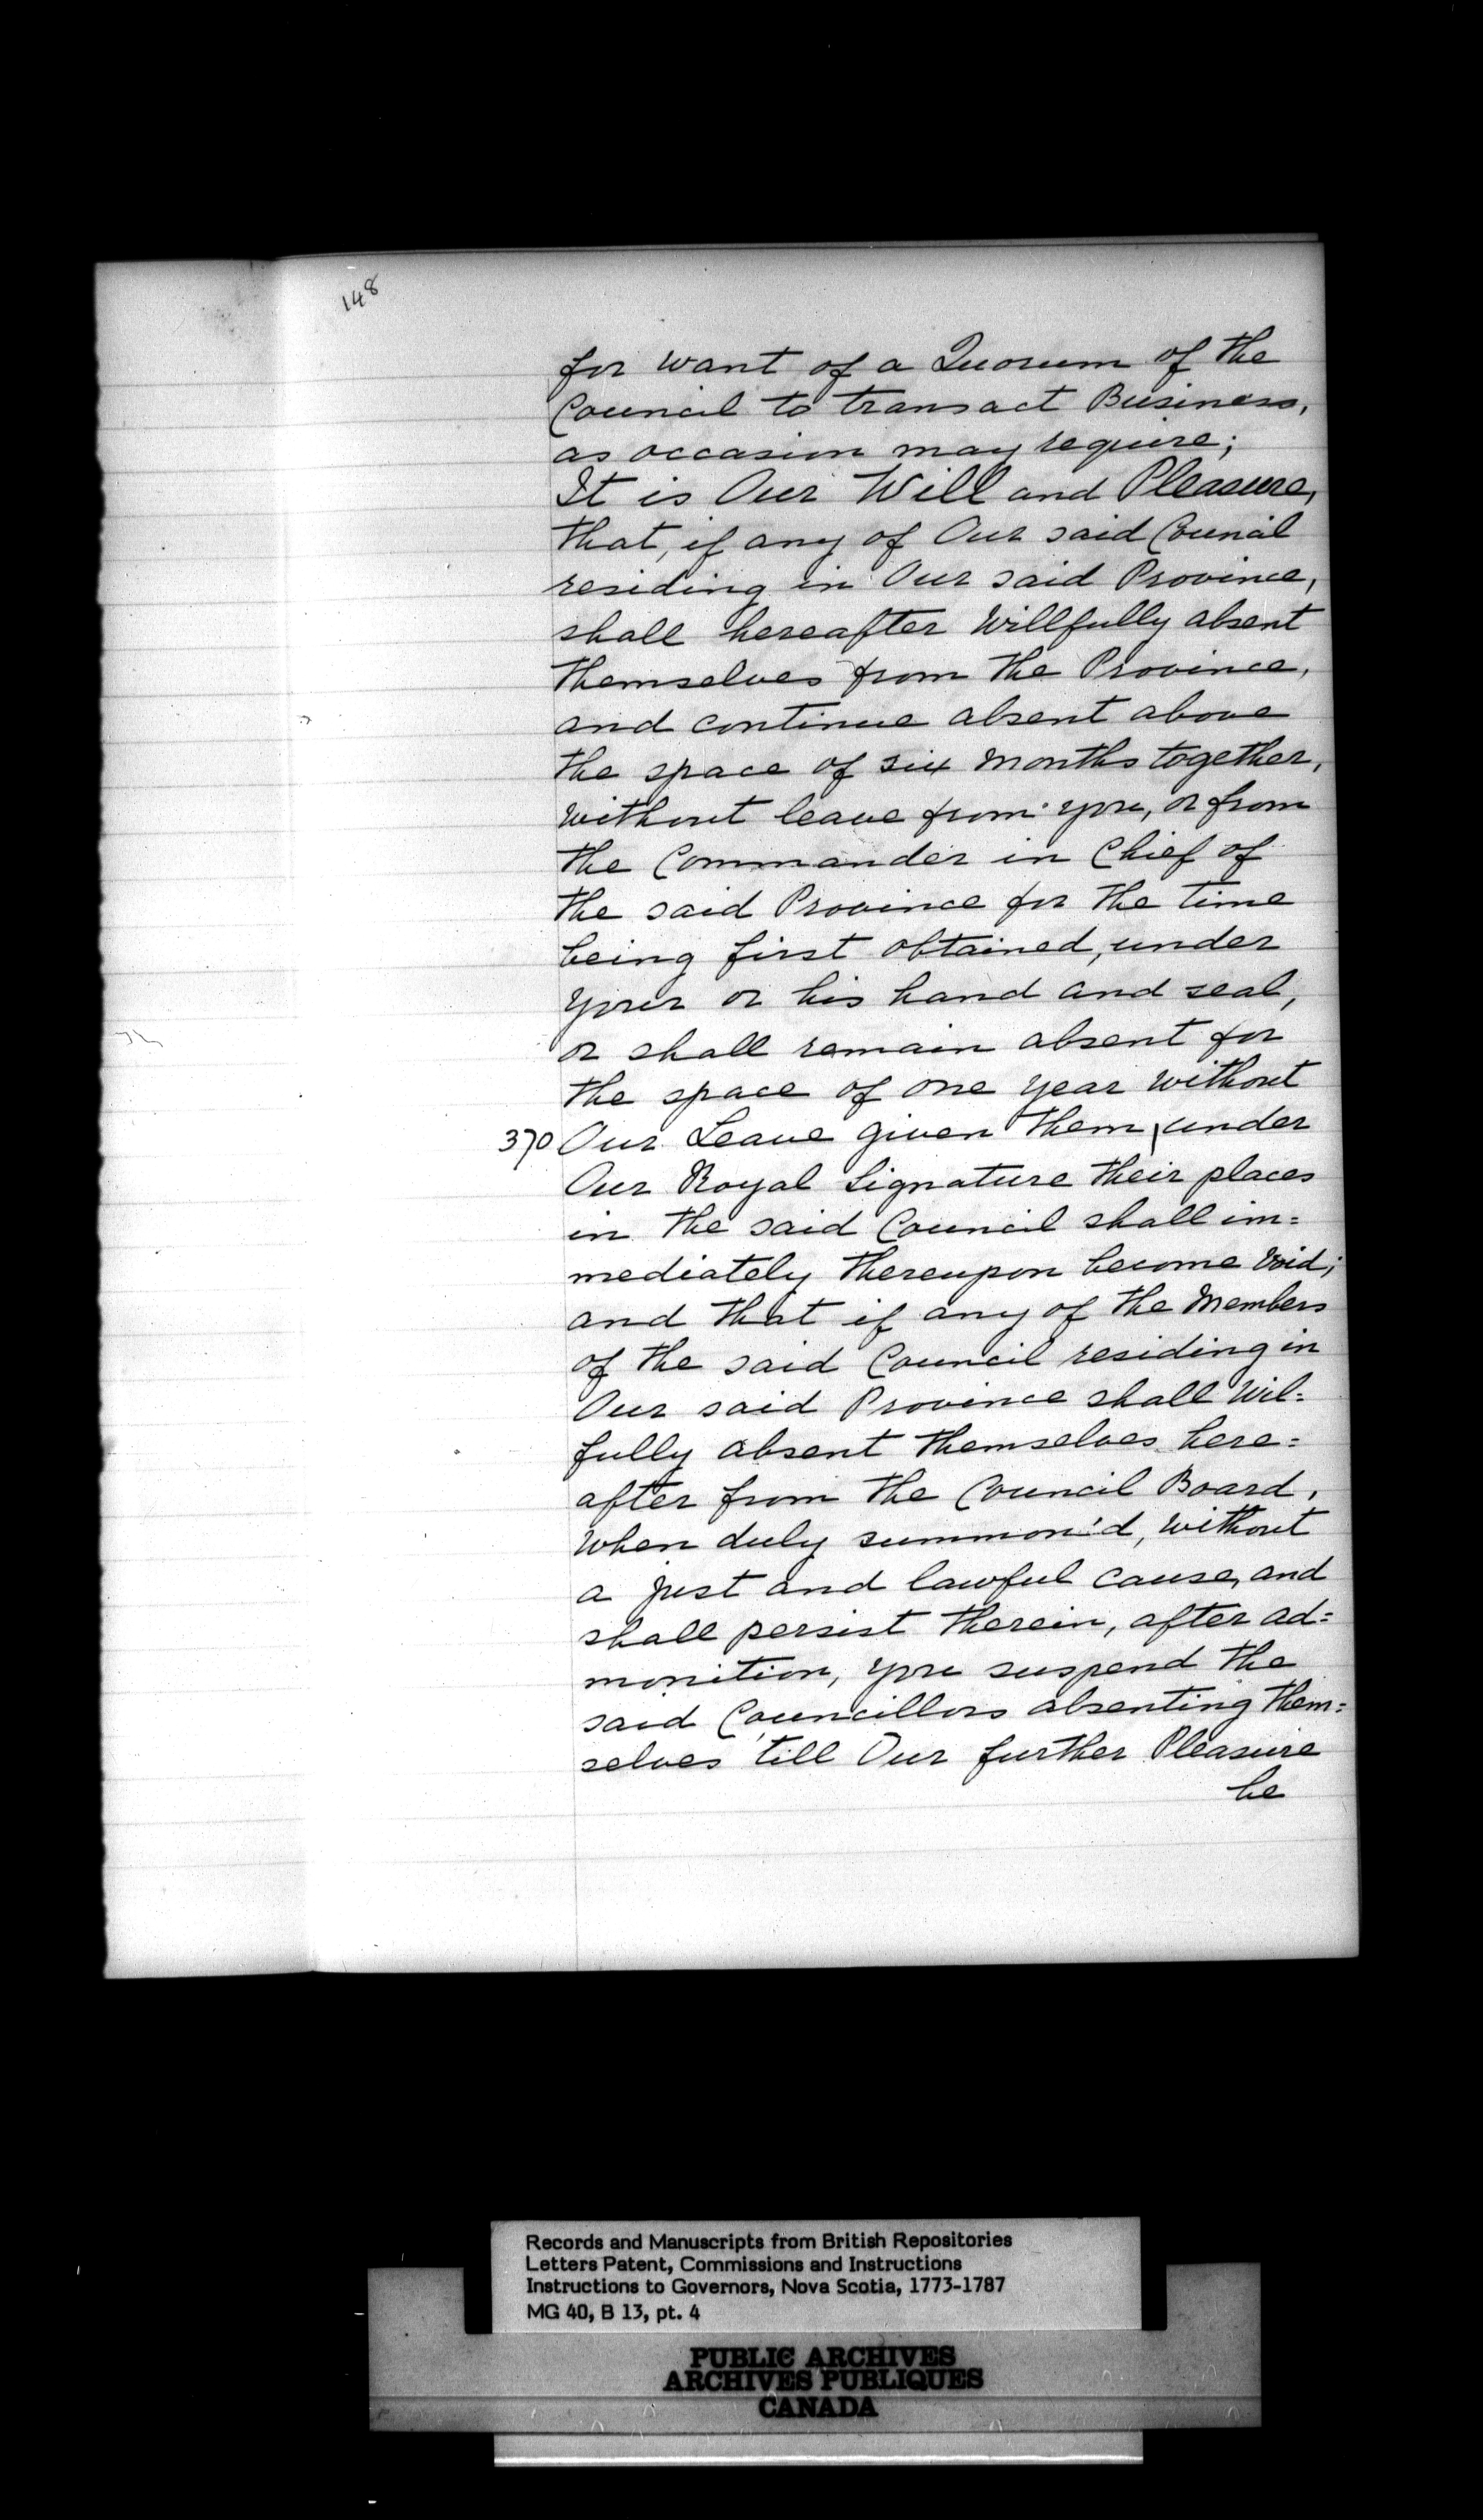 148
for want of a Quorum of the
Council to transact Business,
as occasion may require;
It is Our Will and Pleasure,
that, if any of Our said Council
residing in Our said Province,
shall hereafter Willfully absent
themselves from the Province,
and continue absent above
the space of six Months together,
without leave from you, or from
the Commander in Chief of
the said Province for the time
being first obtained, under
your or his hand and seal,
or shall remain absent for
the space of one year without
370 Our Leave given them \ under
Our Royal Signature their places
in the said Council shall im=
mediately thereupon become void;
and that if any of the Members
of the said Council residing in
Our said Province shall Wil=
fully absent themselves here=
after from the Council Board,
when duly summon'd, without
a just and lawful cause, and
shall persist therein, after ad=
monition, you suspend the
said Councillors absenting them=
selves till Our further Pleasure
be
Records and Manuscripts from British Repositories
Letters Patent, Commissions and Instructions
Instructions to Governors, Nova Scotia, 1773-1787
MG 40, B 13, pt. 4
PUBLIC ARCHIVES
ARCHIVES PUBLIQUES
CANADA